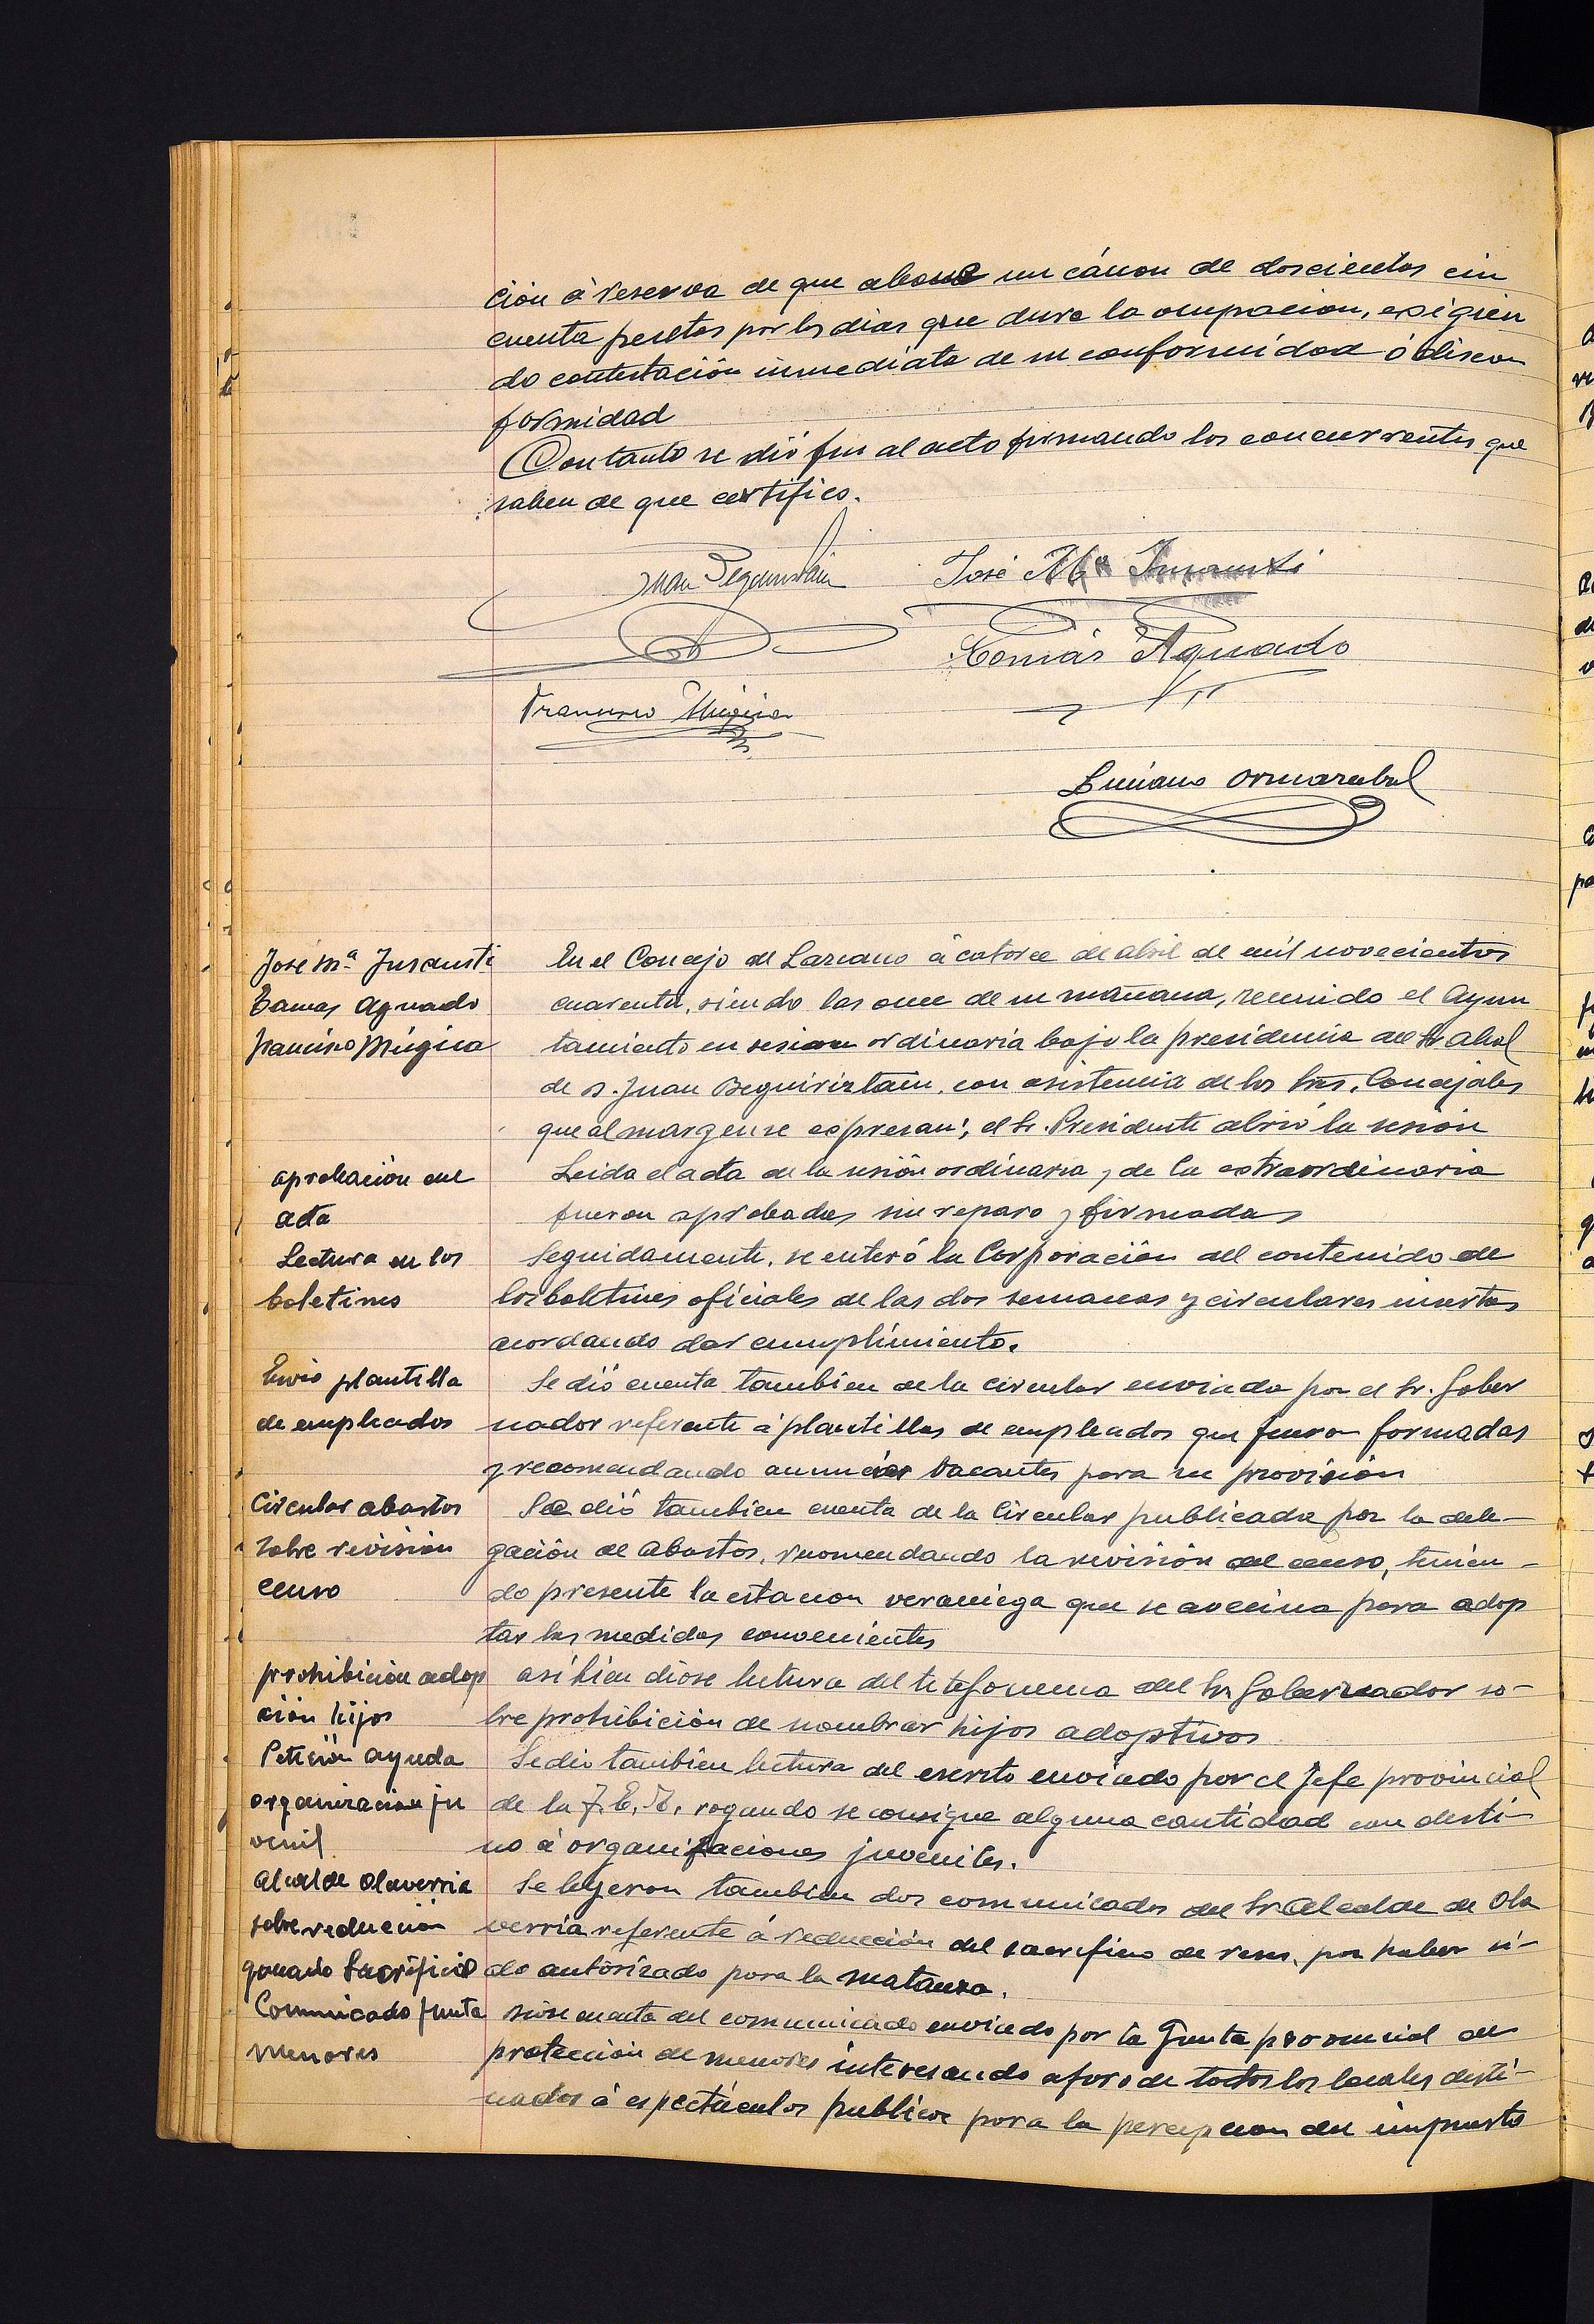 ción á reserva de que abone un cánon de doscientos cin
cuenta pesetas por los dias que dure la ocupacion, exigien
do contestación inmediata de su conformidad ó discon
formidad
Con tanto se dió fin al acto firmando los concurrentes que
saben de que certifico.
Juan Beguiristain
José Mª Insausti
Tomás Aguado
Francisco Múgica
Luciano Ormazabal
José Mª Insausti
Tomas Aguado
Francisco Múgica
En el Concejo de Lazcano á catorce de abril de mil novecientos
cuarenta, siendo las once de su mañana, reunido el Ayun
tamiento en sesion ordinaria bajo la presidencia del Sr Alcal
de D. Juan Beguiriztain, con asistencia de los Srs. Concejales
que al margen se expresan; el Sr. Presidente abrió la sesión
aprobación del
acta
Leida el acta de la sesión ordinaria y de la extraordinaria
fueron aprobadas sin reparo y firmadas
Lectura de los
boletines
Seguidamente, se enteró la Corporación del contenido de
los boletines oficiales de las dos semanas y circulares insertas
acordando dar cumplimiento.
Envio plantilla
de empleados
Se dió cuenta tambien de la circular enviada por el Sr. Gober
nador referente á plantillas de empleados que fueron formadas
y recomendando anunciar vacantes para su provisión
Circular abastos
sobre revisión
censo
Se dió tambien cuenta de la Circular publicada por la dele-
gación de Abastos, recomendando la revisión del censo, tenien-
do presente la estacion veraniega que se avecina para adop
tar las medidas convenientes
prohibición adop
ción hijos
asi bien dióse lectura del telefonema del Sr Gobernador so-
bre prohibición de nombrar hijos adoptivos
Petición ayuda
organizacion ju
venil
Se dio tambien lectura del escrito enviado por el Jefe provincial
de la F.E.T. rogando se consigne alguna cantidad con desti-
no á organizaciones juveniles.
Alcalde Olaverria
sobre reducción
ganado Sacrificio
Se leyeron tambien dos comunicados del Sr Alcalde de Ola
verria referente á reducción del sacrificio de reses, por haber si-
do autorizado para la matanza.
Comunicado Junta
Menores
Dióse cuenta del comunicado enviado por la Junta provincial de
protección de menores interesando aforo de todos los locales desti-
nados á espectáculos publicos para la percepcion del impuesto